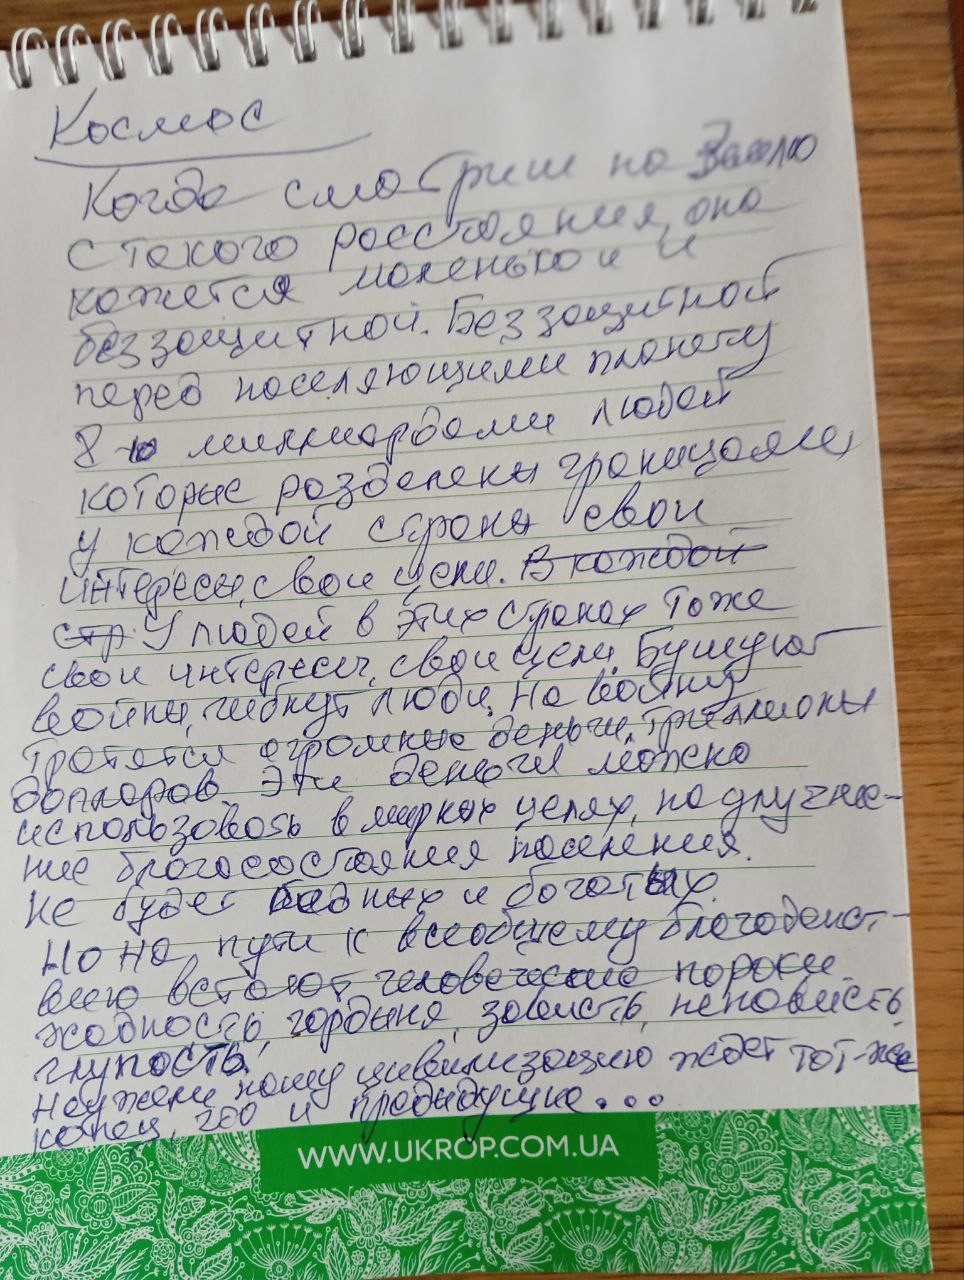 Космос
Когда смотриш на Землю
с такого расстояния, она
кажется маленькой и
беззащитной. Беззащитной
перед населяющими планету
8-ю миллиардами людей
которые разделены границами,
у каждой страны свои
интересы, свои цели. В каждой
стр У людей в этих странах тоже
свои интересы, свои цели. Бушуют
войны, гибнут люди. На войну
тратятся огромные деньги, триллионы
долларов. Эти деньги можно
использовать в мирных целях, на улучше-
ние благосостояния населения.
Не будет бедных и богатых.
Но на пути к всеобщему благоденст-
вию встают человеческие пороки.
жадность, гордыня, зависть, ненависть,
глупость.
Неужели нашу цивилизацию ждет тот-же
конец, и предыдущие...
WWW.UKROP.COM.UA